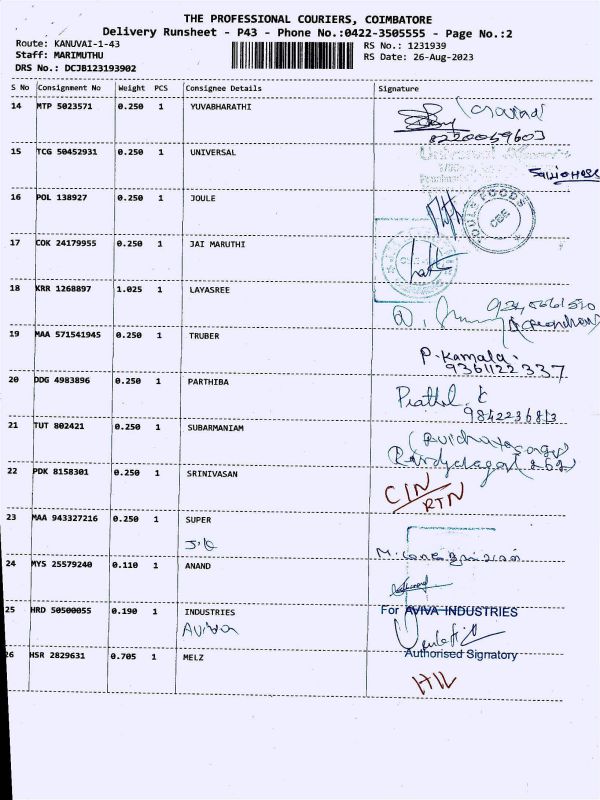 THE PROFESSIONAL COURIERS, COIMBATORE
Delivery Runsheet - P43 - Phone No.:0422-3505555 - Page No.:2
Route: KANUVAI-1-43
Staff: MARIMUTHU
DRS No.: DCJB123193902
RS No.: 1231939
RS Date: 26-Aug-2023
S No Consignment No Weight PCS Consignee Details Signature
14 MTP 5023571 0.250 1 YUVABHARATHI
8220059603
15 TCG 50452931 0.250 1 UNIVERSAL
Universal
16 POL 138927 0.250 1 JOULE
JOULE FOODS
CBE
17 COK 24179955 0.250 1 JAI MARUTHI
18 KRR 1268897 1.025 1 LAYASREE
19 MAA 571541945 0.250 1 TRUBER
P. Kamala
9361122337
20 DDG 4983896 0.250 1 PARTHIBA
9842236813
21 TUT 802421 0.250 1 SUBARMANIAM
22 PDK 8158301 0.250 1 SRINIVASAN
CIN
RTN
23 MAA 943327216 0.250 1 SUPER
24 MYS 25579240 0.110 1 ANAND
25 HRD 50500055 0.190 1 INDUSTRIES
Aviva
For AVIVA INDUSTRIES
Authorised Signatory
26 HSR 2829631 0.705 1 MELZ